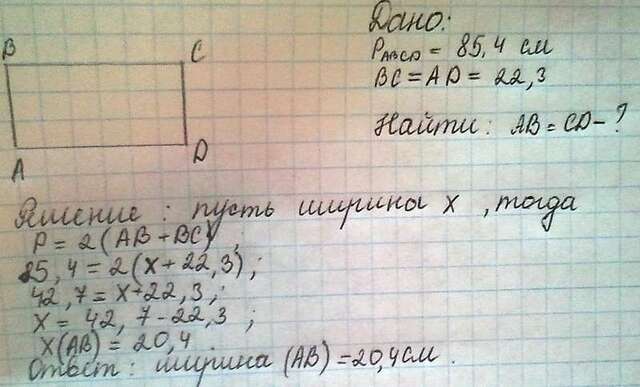 B
C
A
D
Дано:
P ABCD = 85,4 см
BC = AD = 22,3
Найти: AB = CD - ?
Решение: пусть ширина x, тогда
P = 2(AB + BC);
85,4 = 2(x + 22,3);
42,7 = x + 22,3;
x = 42,7 - 22,3;
x(AB) = 20,4.
Ответ: ширина (AB) = 20,4 см.